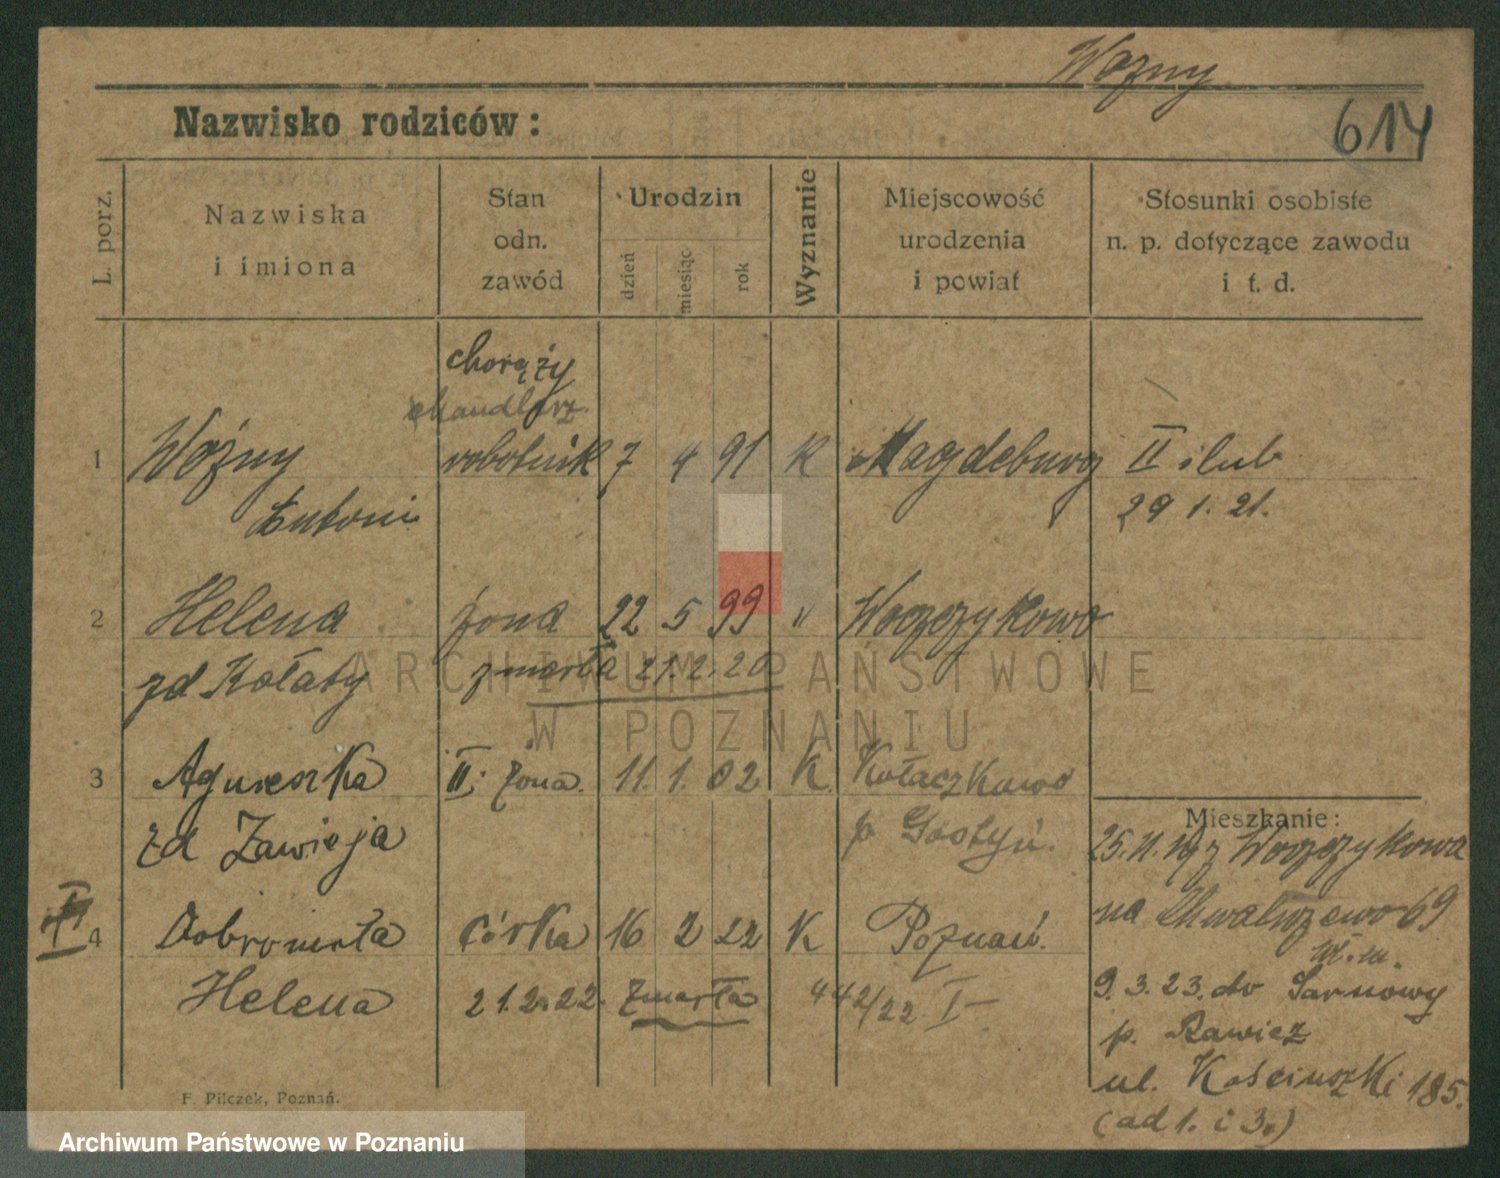 Woźny
Nazwisko rodziców:
614
L. porz.
Nazwiska
i imiona
Stan
odn.
zawód
Urodzin
dzień
miesiąc
rok
Wyznanie
Miejscowość
urodzenia
i powiat
Stosunki osobiste
n. p. dotyczące zawodu
i t. d.
chorąży
handlarz.
1 Woźny robotnik 7 4 91 K Magdeburg II ślub
Antoni 29 1. 21.
2 Helena żona 22 5 99 "
zd Kołaty zmarła 21.2.20
3 Agnieszka II. żona. 11. 1. 02 K Kołaczkowo
zd Zawieja p Gostyń.
4 córka 16 2 22 K Poznań.
Helena 21.2.22. zmarła 442/22 I
Mieszkanie:
25.11.19 z
na Chwaliszewo 69
9.3.23. do Sarnowy
p. Rawicz
ul. Kościuszki 185.
(ad 1. i 3.)
F. Pilczek, Poznań.
ARCHIWUM PAŃSTWOWE
W POZNANIU
Archiwum Państwowe w Poznaniu